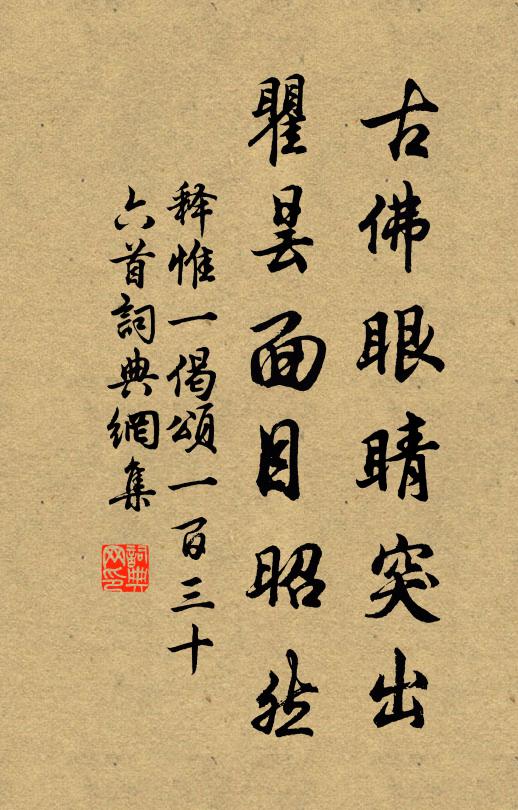 古佛眼睛突出
瞿昙面目昭然
释惟一偈頌一百三十
六首詞典網集
詞典网印